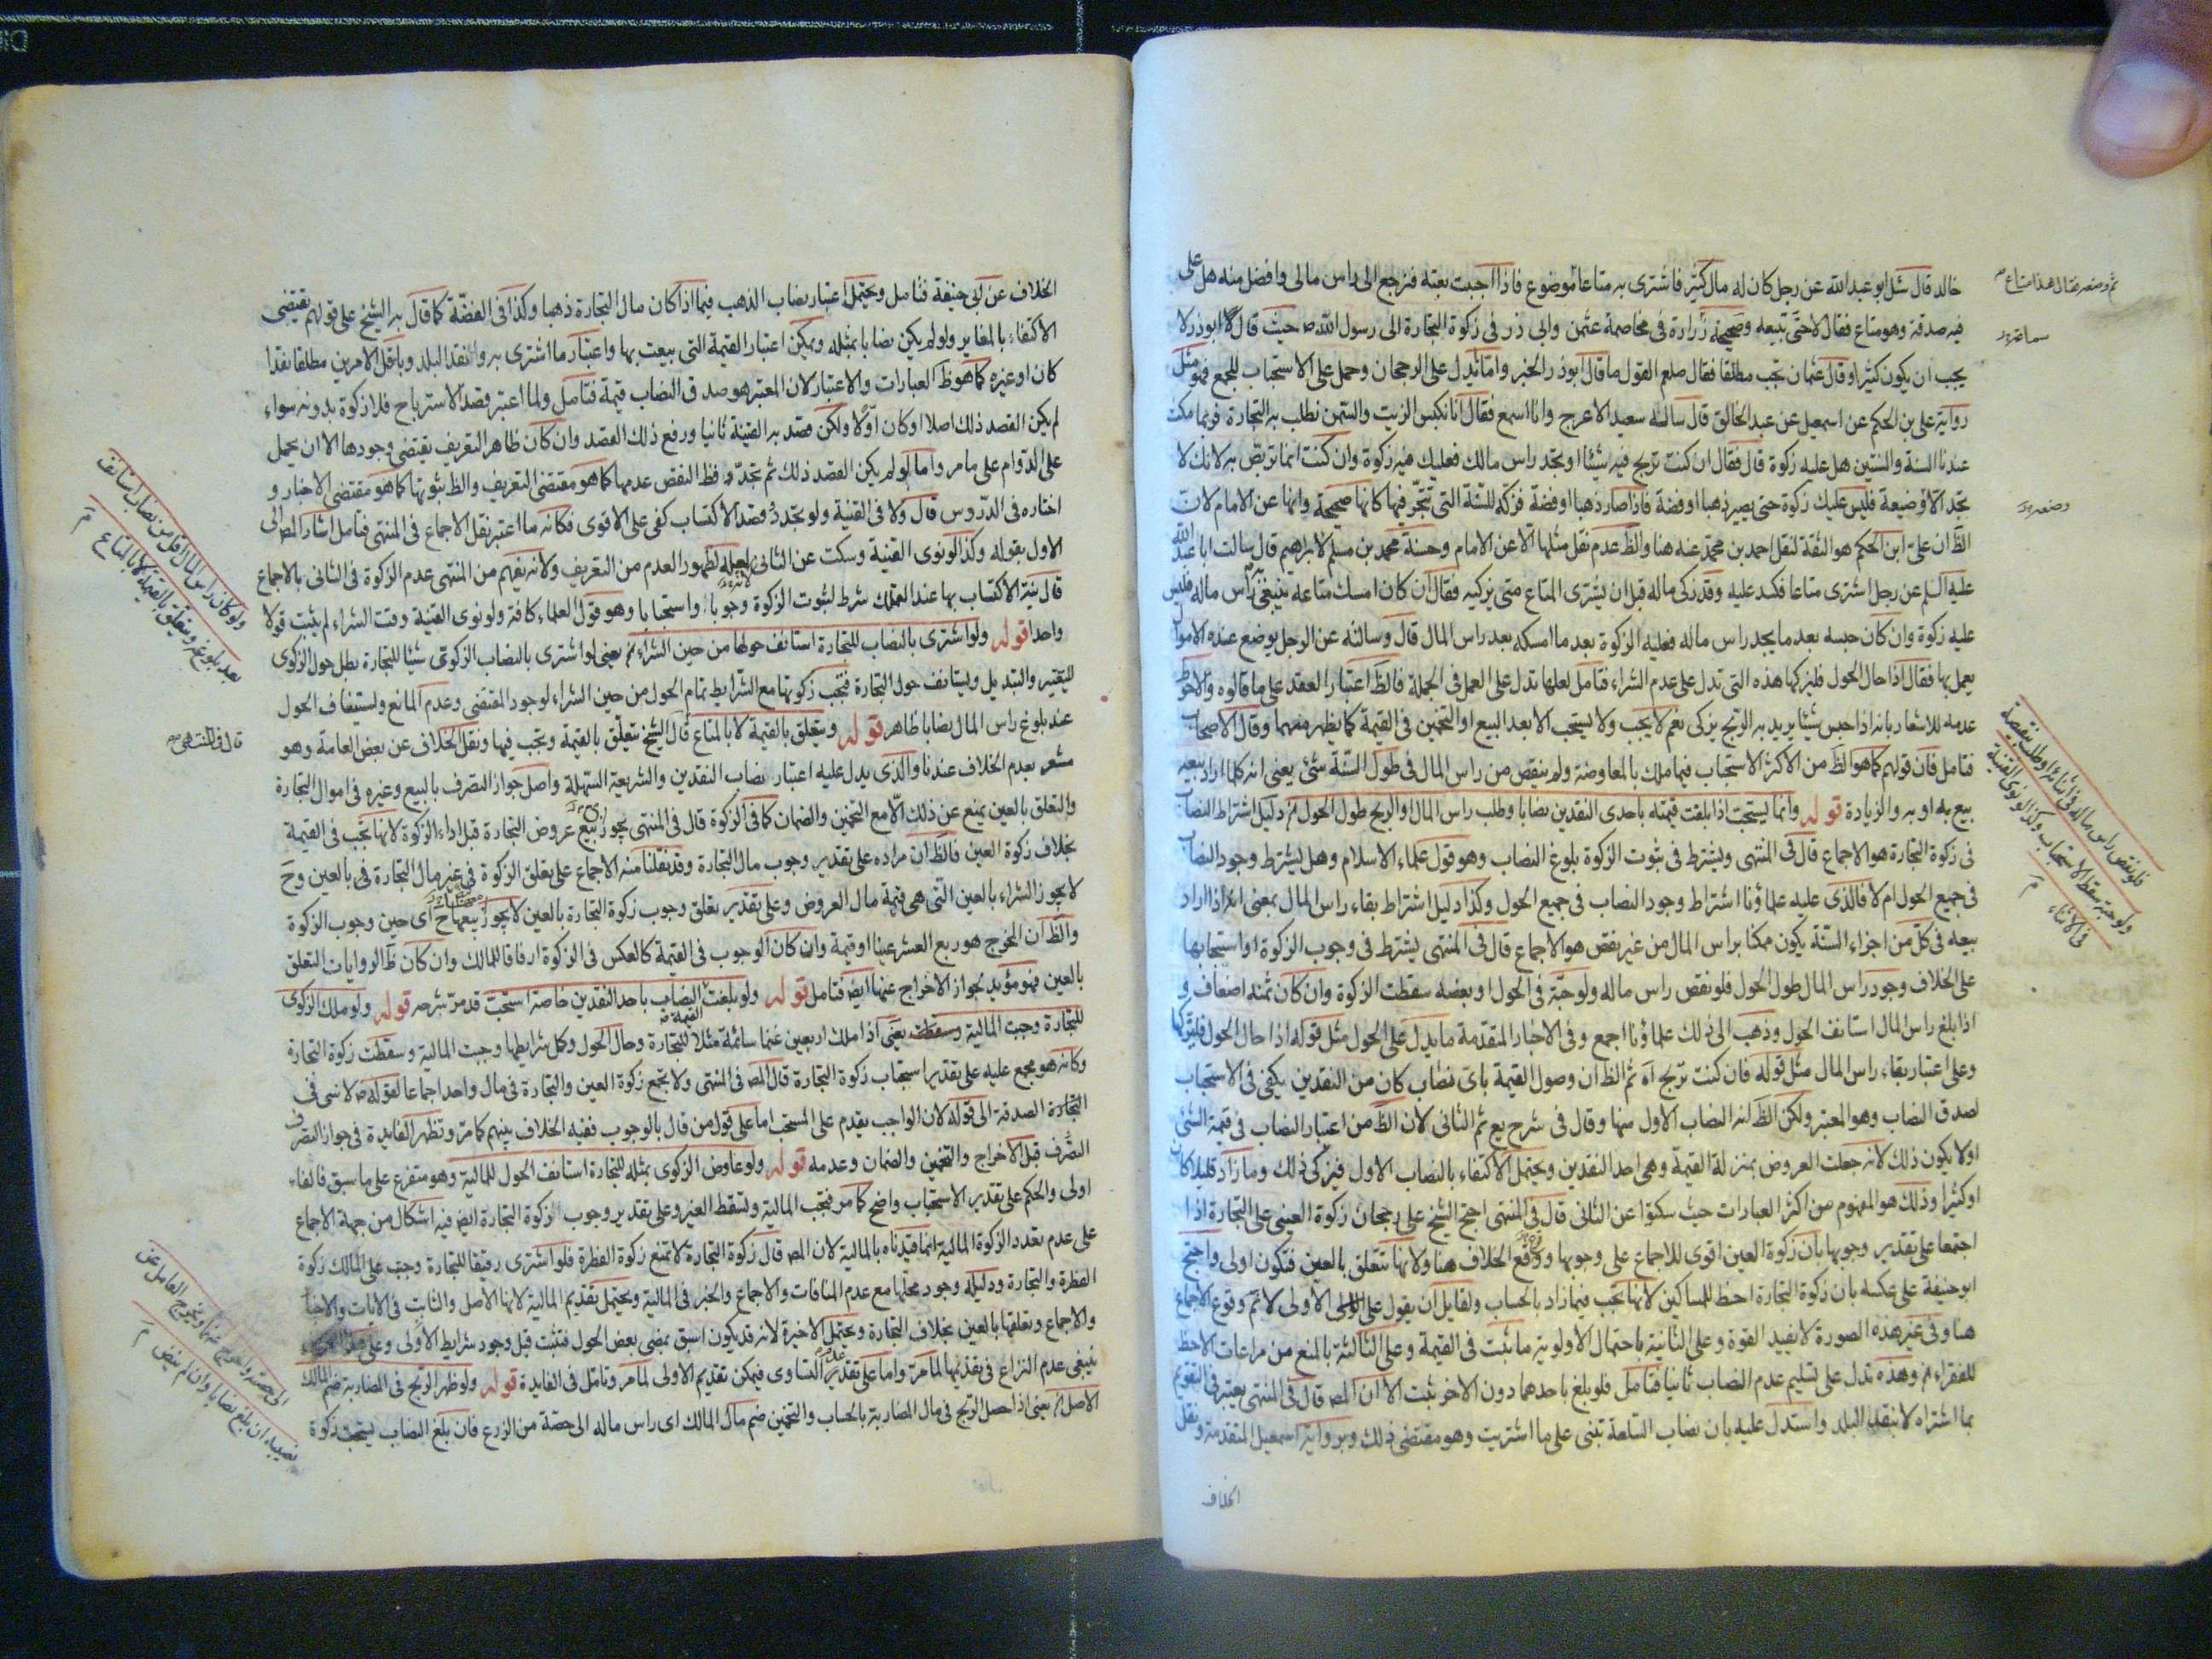 خالد قال سئل ابو عبد الله عن رجل كان له مال كثير فاشترى به متاعا ثم وضعه فاذا احببت بعته فيرجع الى راس مالى وافضل منه هل على
فيه صدقة وهو متاع فقال لا حتى تبيعه وصحيحة زرارة فى مخاصمة عثمن وابى ذر فى زكوة التجارة الى رسول الله ص حيث قال ابوذر لا
يجب ان يكون كثيرا وقال عثمان تجب مطلقا فقال صلعم القول ما قال ابوذر الخبر واما تدل على الرجحان وحمل على الاستحباب للجمع فهو مثل
رواية على بن الحكم عن اسمعيل عن عبد الخالق قال ساله سعيد الاعرج وانا اسمع فقال انا نكبس الزيت والسمن نطلب به التجارة فربما مكث
عندنا السنة والسنتين هل عليه زكوة قال فقال ان كنت تربح فيه شيئا او تجد راس مالك فعليك فيه زكوة وان كنت انما تربص به لانك لا
تجد الا وضيعة فليس عليك زكوة حتى يصير ذهبا او فضة فاذا صار ذهبا او فضة فزكه للسنة التى تتجر فيها كانها صحيحة وانها عن الامام لان
الظ ان على ابن الحكم هو الثقة لنقل احمد بن محمد عنه هنا والظ عدم نقل مثلها الا عن الامام وحسنة محمد بن مسلم لابراهيم قال سالت ابا عبد الله
عليه السلم عن رجل اشترى متاعا فكسد عليه وقد زكى ماله قبل ان يشترى المتاع متى يزكيه فقال ان كان امسك متاعه يبتغى به راس ماله فليس
عليه زكوة وان كان حبسه بعد ما يجد راس ماله فعليه الزكوة بعد ما امسكه بعد راس المال قال وسالته عن الرجل يوضع عنده الاموال
يعمل بها فقال اذا حال الحول فليزكها هذه التى تدل على عدم الشراء فتامل لعلها تدل على العمل فى الجملة فالظ اعتبار العقد على ما قالوه والاحوط
عدمه للاشعار بانه اذا حبس شيئا يريد به الربح يزكى نعم لا يجب ولا يستحب الا بعد البيع او التخمين فى القيمة كما يظهر منهما وقال الاصحاب
فتامل فان قولهم كما هو الظ من الاكثر الاستحباب فيما ملك بالمعاوضة ولم ينقص من راس المال فى طول السنة شئ يعنى انه كلما اراد بيعه
بيع به او به والزيادة قوله وانما يستحب اذا بلغت قيمته باحدى النقدين نصابا وطلب راس المال او الربح طول الحول دليل اشتراط النصاب
فى زكوة التجارة هو الاجماع قال فى المنتهى ويشترط فى ثبوت الزكوة بلوغ النصاب وهو قول علماء الاسلام وهل يشترط وجود النصاب
فى جميع الحول ام لا فالذى عليه علماؤنا اشتراط وجود النصاب فى جميع الحول وكذا دليل اشتراط بقاء راس المال بمعنى انه اذا اراد
بيعه فى كل من اجزاء السنة يكون ممكنا براس المال من غير نقص هو الاجماع قال فى المنتهى يشترط فى وجوب الزكوة او استحبابها
على الخلاف وجود راس المال طول الحول فلو نقص راس ماله ولو حبة فى الحول او بعضه سقطت الزكوة وان كان ثمنه اضعافه و
اذا بلغ راس المال استانف الحول وذهب الى ذلك علماؤنا اجمع وفى الاخبار المتقدمة ما يدل على الحول مثل قوله اذا حال الحول فليزكها
وعلى اعتبار بقاء راس المال مثل قوله فان كنت تربح اه ثم الظ ان وصول القيمة باى نصاب كان من النقدين يكفى فى الاستحباب
لصدق النصاب وهو المعتبر ولكن الظ انه النصاب الاول منها وقال فى شرح يع ثم الثانى لان الظ من اعتبار النصاب فى قيمة الشئ
اولا يكون ذلك لانه جعلت العروض بمنزلة القيمة وهى احد النقدين ويحتمل الاكتفاء بالنصاب الاول فيزكى ذلك وما زاد قليلا كان
او كثيرا وذلك هو المفهوم من اكثر العبارات حيث سكتوا عن الثانى قال فى المنتهى احتج الشيخ على رجحان زكوة العينى على التجارة اذا
اجتمعا على تقدير وجوبها بان زكوة العين اقوى للاجماع على وجوبها ووقع الخلاف هنا ولانها تتعلق بالعين فتكون اولى واحتج
ابو حنيفة على عكسه بان زكوة التجارة احظ للمساكين لانها تجب فيما زاد بالحساب ولقايل ان يقول على الاولى لا ثم وقوع الاجماع
هنا وفى غير هذه الصورة لا يفيد القوة وعلى الثانية باحتمال الاولوية ما ثبت فى القيمة وعلى الثالثة بالمنع من مراعات الاحظ
للفقراء وهذه تدل على تسليم عدم النصاب ثانيا فتامل فلو بلغ باحدهما دون الاخر ثبت الا ان المص قال فى المنتهى يعتبر فى التقويم
بما اشتراه لا بنقد البلد واستدل عليه بان نصاب السلعة تبنى على ما اشتريت وهو مقتضى ذلك وبرواية اسمعيل المتقدمة ونقل
الخلاف
ثم وضعه فقال هذا متاع
فلو نقص راس ماله فى اثنائه او طلب بنقيصة
ولو حبة سقط الاستحباب وكذا لو نوى القنية
فى الاثناء م
الخلاف عن ابى حنيفة فتامل ويحتمل اعتبار نصاب الذهب فيما اذا كان مال التجارة ذهبا وكذا فى الفضة كما قال به الشيخ على قولهم يقتضى
الاكتفاء بالمغاير ولو لم يكن نصابا بمثله ويمكن اعتبار القيمة التى بيعت بها واعتبار ما اشترى به والنقد البلد وباقل الامرين مطلقا نقدا
كان او غيره كما هو ظ العبارات والاعتبار لان المعتبر هو صدق النصاب قيمة فتامل ولما اعتبر قصد الاسترباح فلا زكوة بدونه سواء
لم يكن القصد ذلك اصلا او كان اولا ولكن قصد به القنية ثانيا ورفع ذلك القصد وان كان ظاهر التعريف يقتضى وجودها الا ان يحمل
على الدوام على ما مر واما لو لم يكن القصد ذلك ثم تجدد فظ النقص عدمها كما هو مقتضى التعريف والظ ثبوتها كما هو مقتضى الاخبار و
اختاره فى الدروس قال ولا فى القنية ولو تجدد قصد الاكتساب كفى على الاقوى فكانه ما اعتبر نقل الاجماع فى المنتهى فتامل اشار المص الى
الاول بقوله وكذا لو نوى القنية وسكت عن الثانى لعله لظهور العدم من التعريف ولانه يفهم من المنتهى عدم الزكوة فى الثانى بالاجماع
قال نية الاكتساب بها عند التملك شرط لثبوت الزكوة وجوبا او استحبابا وهو قول العلماء كافة ولو نوى القنية وقت الشراء لم يثبت قولا
واحدا قوله ولو اشترى بالنصاب للتجارة استانف حولها من حين الشراء يعنى لو اشترى بالنصاب الزكوى شيئا للتجارة بطل حول الزكوى
للتغيير والتبديل ويستانف حول التجارة فتجب زكوتها مع الشرايط تمام الحول من حين الشراء لوجود المقتضى وعدم المانع واستيناف الحول
عند بلوغ راس المال نصابا ظاهر قوله ويتعلق بالقيمة لا بالمتاع قال الشيخ تتعلق بالقيمة وتجب فيها ونقل الخلاف عن بعض العامة وهو
مشعر بعدم الخلاف عندنا والذى يدل عليه اعتبار نصاب النقدين والشريعة السهلة واصل جواز التصرف بالبيع وغيره فى اموال التجارة
والتعلق بالعين يمنع عن ذلك الا مع التخمين والضمان كما فى الزكوة قال فى المنتهى يجوز بيع عروض التجارة قبل اداء الزكوة لانها تجب فى القيمة
بخلاف زكوة العين فالظ ان مراده على تقدير وجوب مال التجارة وقد نقلنا منه الاجماع على تعلق الزكوة فى غير مال التجارة فى بالعين وح
لا يجوز الشراء بالعين التى هى قيمة مال العروض وعلى تقدير تعلق وجوب زكوة التجارة بالعين لا يجوز بيعها ح اى حين وجوب الزكوة
والظ ان المخرج هو ربع العشر عينا او قيمة وان كان الوجوب فى القيمة كالعكس فى الزكوة ارفاقا للمالك وان كان ظ الروايات التعلق
بالعين فهو مؤيد لجواز الاخراج عنها ايض فتامل قوله ولو بلغت النصاب باحد النقدين خاصة استحبت قد مر شرحه قوله ولو ملك الزكوى
للتجارة وجبت المالية يعنى اذا ملك اربعين غنما سائمة مثلا للتجارة وحال الحول وكل شرايطها وجبت المالية وسقطت زكوة التجارة
وكانه هو مجمع عليه على تقدير استحباب زكوة التجارة قال المص فى المنتهى ولا يجمع زكوة العين والتجارة فى مال واحد اجماعا لقوله ص لا ثنى فى
الصدقة الى قوله لان الواجب يقدم على المستحب اما على قول من قال بالوجوب ففيه الخلاف بينهم كما مر وتظهر الفايدة فى جواز التصرف
قبل الاخراج والتخمين والضمان وعدمه قوله ولو عاوض الزكوى بمثله للتجارة استانف الحول للمالية وهو متفرع على ما سبق فالغاء
اولى والحكم على تقدير الاستحباب واضح كما مر فتجب المالية وتسقط الغير وعلى تقدير وجوب زكوة التجارة ايض فيه اشكال من جهة الاجماع
على عدم تعدد الزكوة المالية انما قيدناه بالمالية لان المص قال زكوة التجارة لا تمنع زكوة الفطرة فلو اشترى رقيقا للتجارة وجب على المالك زكوة
الفطرة والتجارة ودليله وجود محلها مع عدم المنافات والاجماع والخبر فى المالية ويحتمل تقديم المالية لانها الاصل والثابت فى الايات والاخبار
والاجماع وتعلقها بالعين بخلاف التجارة ويحتمل الاخيرة لانه قد يكون اسبق بمضى بعض الحول فتثبت قبل وجود شرايط الاولى وعلى
ينبغى عدم النزاع فى تقديها لما مر واما على تقدير التساوى فيمكن تقديم الاولى لما مر وتامل فى الفايدة قوله ولو ظهر الربح فى المضاربة ضم المالك
الاصل يعنى اذا حصل الربح فى مال المضاربة بالحساب والتخمين ضم مال المالك اى راس ماله الى حصة من الزرع فان بلغ النصاب يستحب زكوة
ولو كان راس المال اقل من نصاب استانف
عند بلوغه ويتعلق بالقيمة لا بالمتاع م
قال فى المنتهى
نصيبه ان بلغ نصابا وان لم ينض م